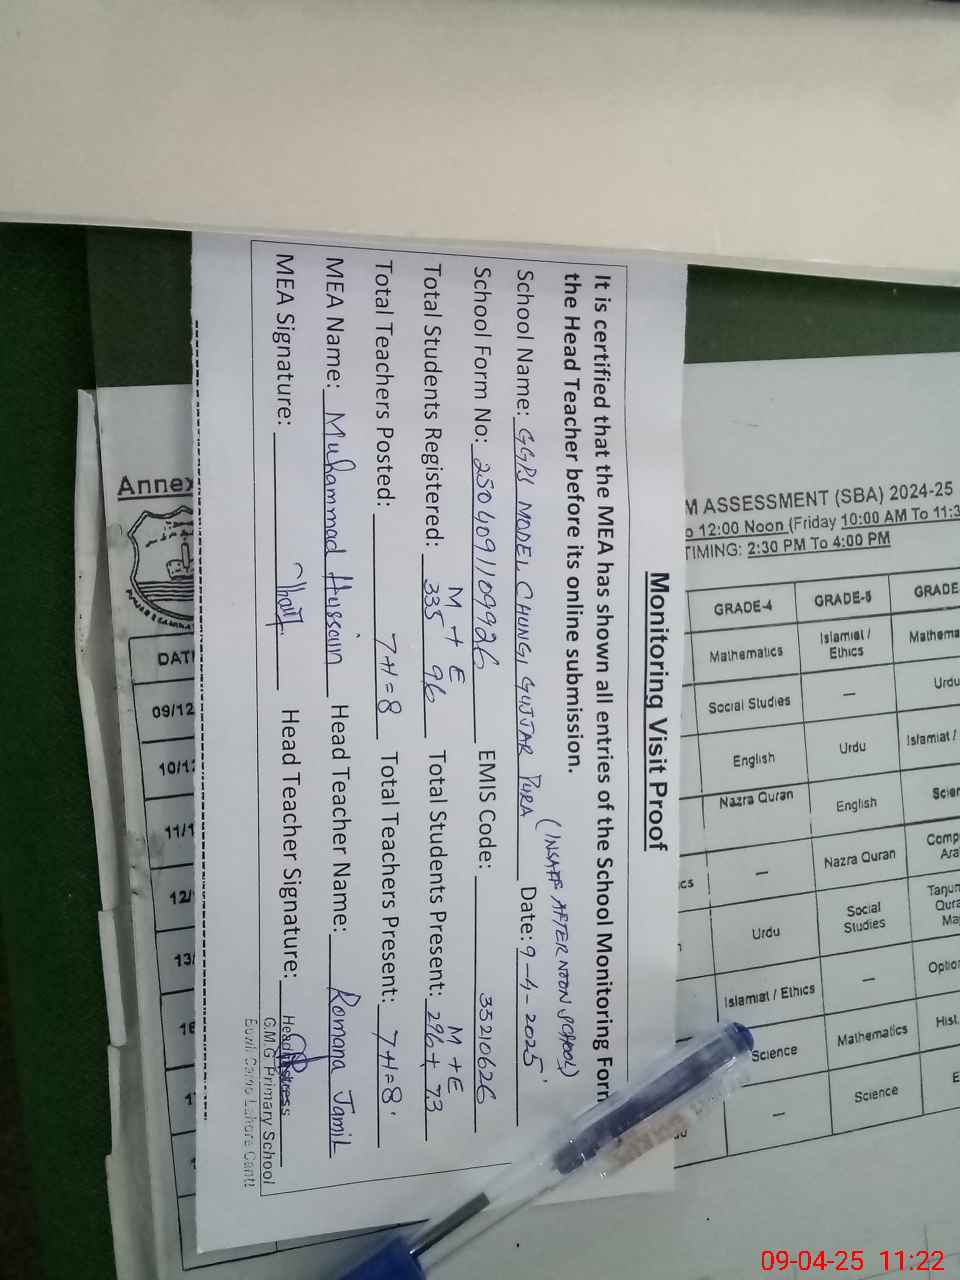 Monitoring Visit Proof
It is certified that the MEA has shown all entries of the School Monitoring Form
the Head Teacher before its online submission.
(INSAFF AFTERNOON SCHOOL)
School Name: GGPS MODEL CHUNGI GUJJAR PURA Date: 9-4-2025
School Form No: 2504091109926 EMIS Code: 35210626
M + E M + E
Total Students Registered: 335 96 Total Students Present: 296+ 73
Total Teachers Posted: 7+1=8 Total Teachers Present: 7+1=8
MEA Name: Muhammad Hussain Head Teacher Name: Romana Jamil
MEA Signature: Head Teacher Signature:
Headmistress
G.M.G. Primary School
Lahore Cantt
Annex
M ASSESSMENT (SBA) 2024-25
o 12:00 Noon (Friday 10:00 AM To 11:3
TIMING: 2:30 PM To 4:00 PM
GRADE-4 GRADE-5 GRADE
Mathematics Islamiat / Ethics Mathema
Social Studies — Urdu
English Urdu Islamiat /
Nazra Quran English Scien
cs — Nazra Quran Comp Ara
Urdu Social Studies Tarjun Qura Ma
Islamiat / Ethics — Optio
Science Mathematics Hist.
— Science E
DAT
09/12
10/1
11/1
12/
13/
16
1
09-04-25 11:22